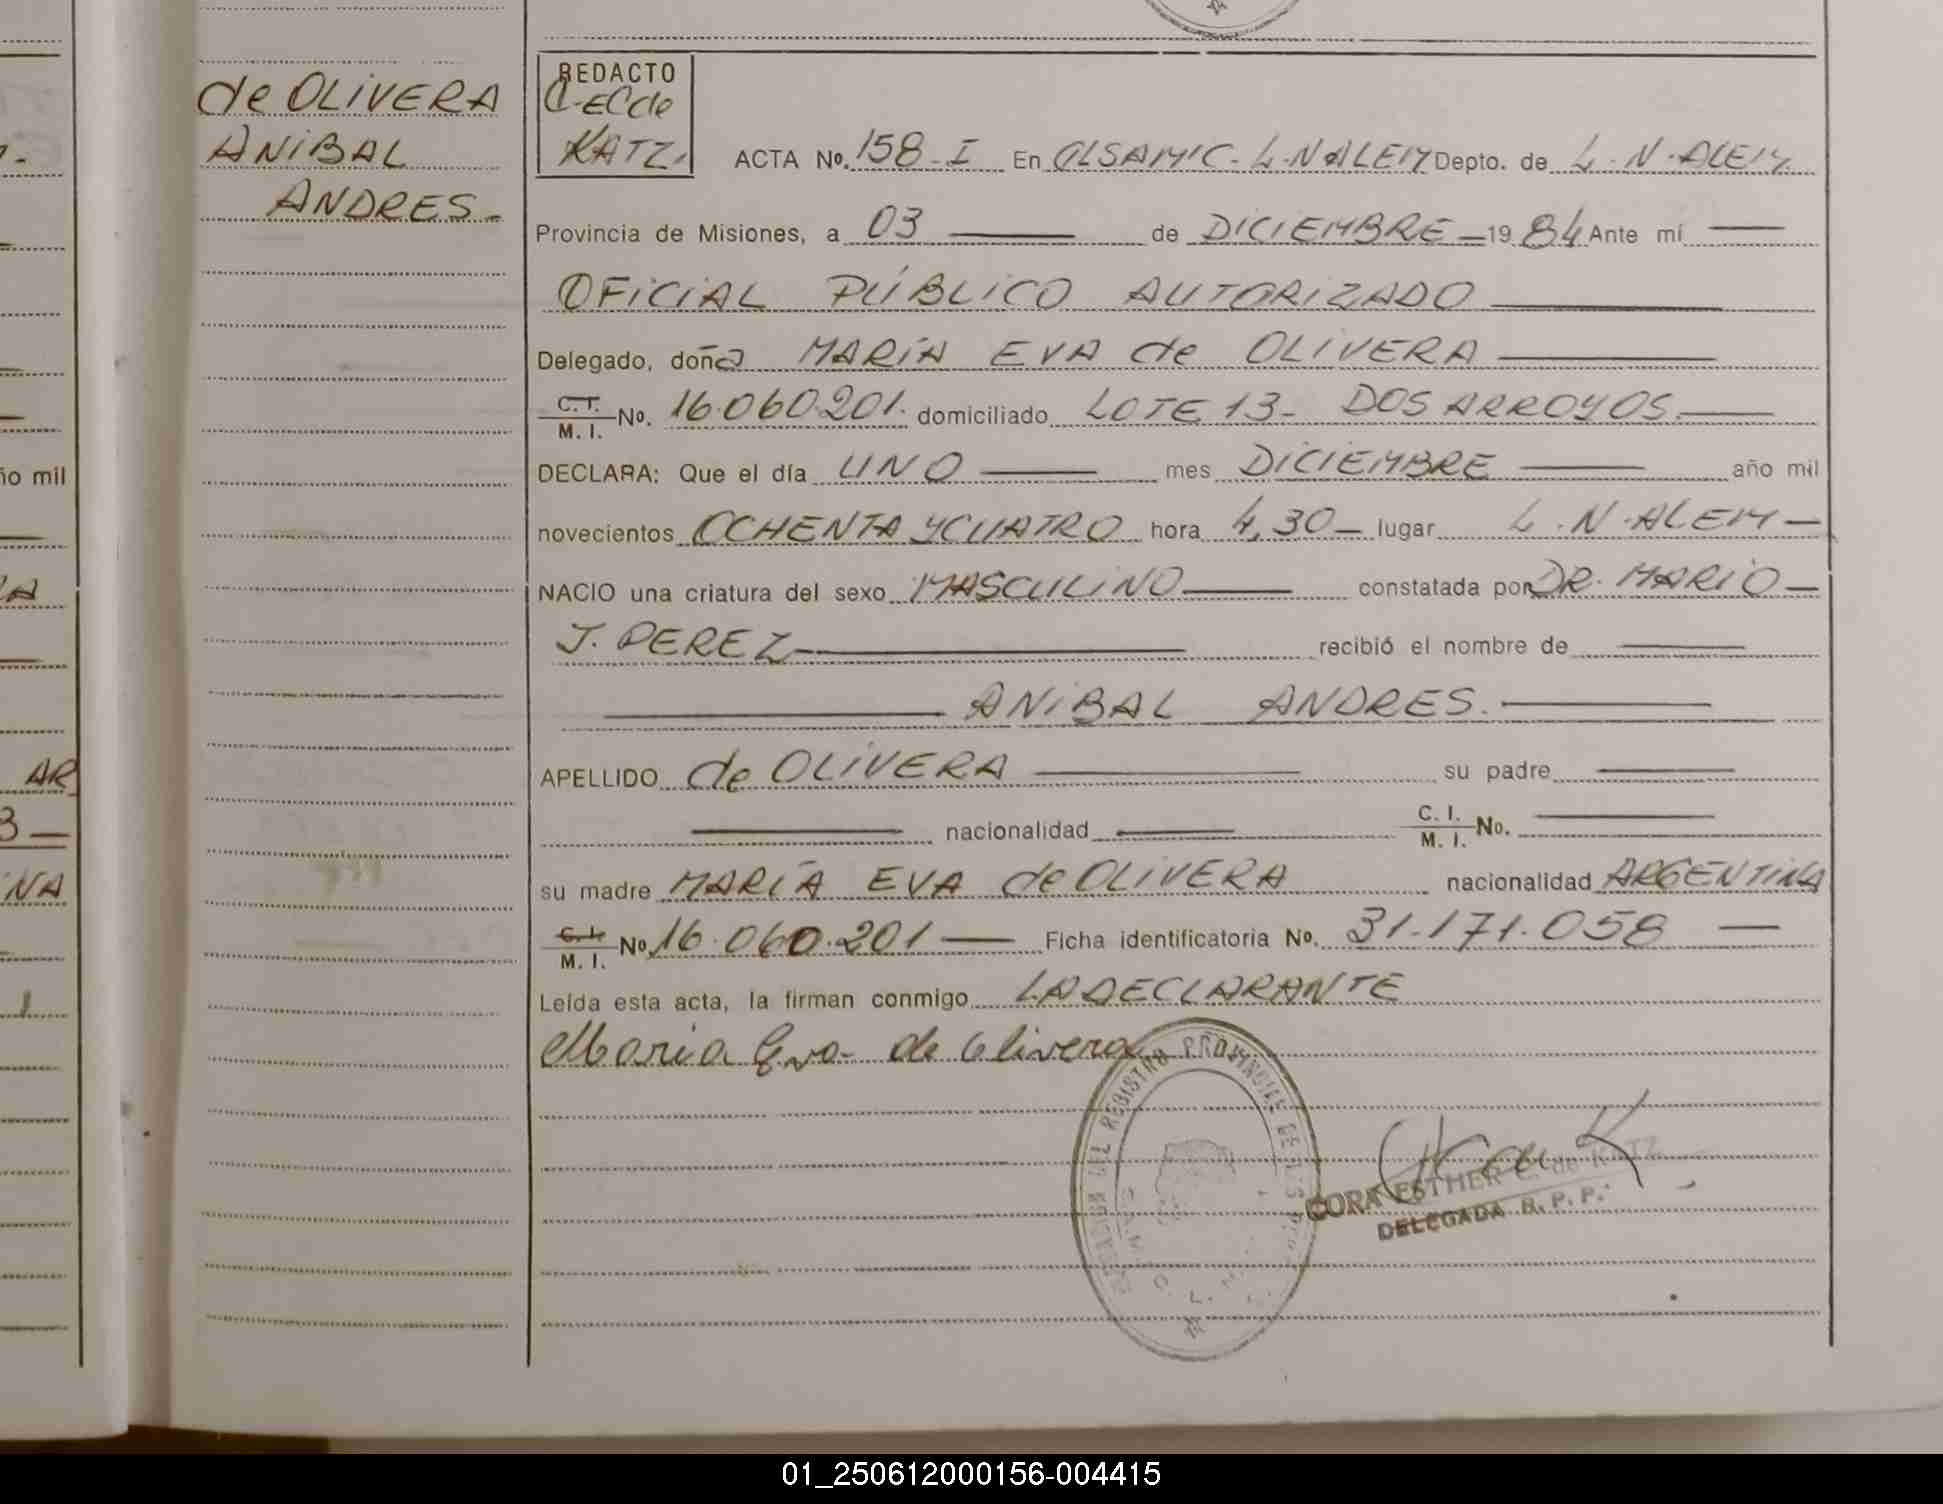 de OLIVERA
ANIBAL
ANDRES-
REDACTO
C-ECde
KATZ.
ACTA No. 158-I En OLSAMIC-L.N ALEM Depto. de L.N.ALEM.
Provincia de Misiones, a 03 de DICIEMBRE 1984 Ante mí
OFICIAL PÚBLICO AUTORIZADO
Delegado, doña MARÍA EVA de OLIVERA
C.T. No. 16.060.201. domiciliado LOTE 13- DOS ARROYOS.
M. I.
DECLARA: Que el día UNO mes DICIEMBRE año mil
novecientos OCHENTA Y CUATRO hora 4,30 lugar L.N.ALEM
NACIO una criatura del sexo MASCULINO constatada por DR. MARIO
J. PEREZ recibió el nombre de
ANIBAL ANDRES.
APELLIDO de OLIVERA su padre
nacionalidad C. I. No.
M. I.
su madre MARÍA EVA de OLIVERA nacionalidad ARGENTINA
C. I. No. 16.060.201 Ficha identificatoria No. 31.171.058
M. I.
Leída esta acta, la firman conmigo LA DECLARANTE
Maria Eva de Olivera
DEL REGISTRO PROVINCIAL DE
CORA ESTHER C. de KATZ
DELEGADA R.P.P.
ño mil
AR
3
INA
01_250612000156-004415